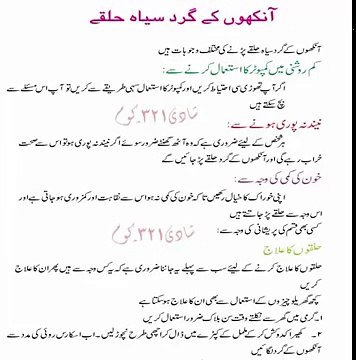 آنکھوں کے گرد سیاہ حلقے
آنکھوں کے گرد سیاہ حلقے پڑنے کی مختلف وجوہات ہیں
کم روشنی میں کمپوٹر کا استعمال کرنے سے:
اگر آپ تھوڑی سی احتیاط کریں اور کمپوٹر کا استعمال صحیح طریقے سے کریں تو آپ اس مسئلے سے
بچ سکتے ہیں
شادی۳۲۱۔کوم
نیند نہ پوری ہونے سے:
ہر شخص کے لیئے ضروری ہے کہ وہ آٹھ گھنٹے ضرور سوئے اگر نیند نہ پوری ہو تو اس سے صحت
خراب رہے گی اور آنکھوں کے گرد حلقے پڑ جائیں گے
خون کی کمی کی وجہ سے:
اپنی خوراک کا خیال رکھیں تا کہ خون کی کمی نہ ہو اس سے نقاہت اور کمزوری ہو جاتی ہے اور
اس وجہ سے حلقے پڑ جاتے ہیں
کسی بھی قسم کی پریشانی کی وجہ سے:
شادی۳۲۱۔کوم
حلقوں کا علاج
حلقوں کا علاج کرنے کے لیئے سب سے پہلے یہ جاننا ضروری ہے کہ یہ کس وجہ سے ہیں پھر ان کا علاج
کریں
کچھ گھریلو چیزوں کے استعمال سے بھی ان کا علاج ہو سکتا ہے
۱۔ گرمی میں گھر سے نکلتے وقت سن بلاک ضرور استعمال کریں
۲۔ کھیرا کدوکش کر کے ململ کے کپڑے میں ڈال کر اچھی طرح نچوڑ لیں۔ اب اسکا رس روئی کی مدد سے
آنکھوں کے گرد لگائیں